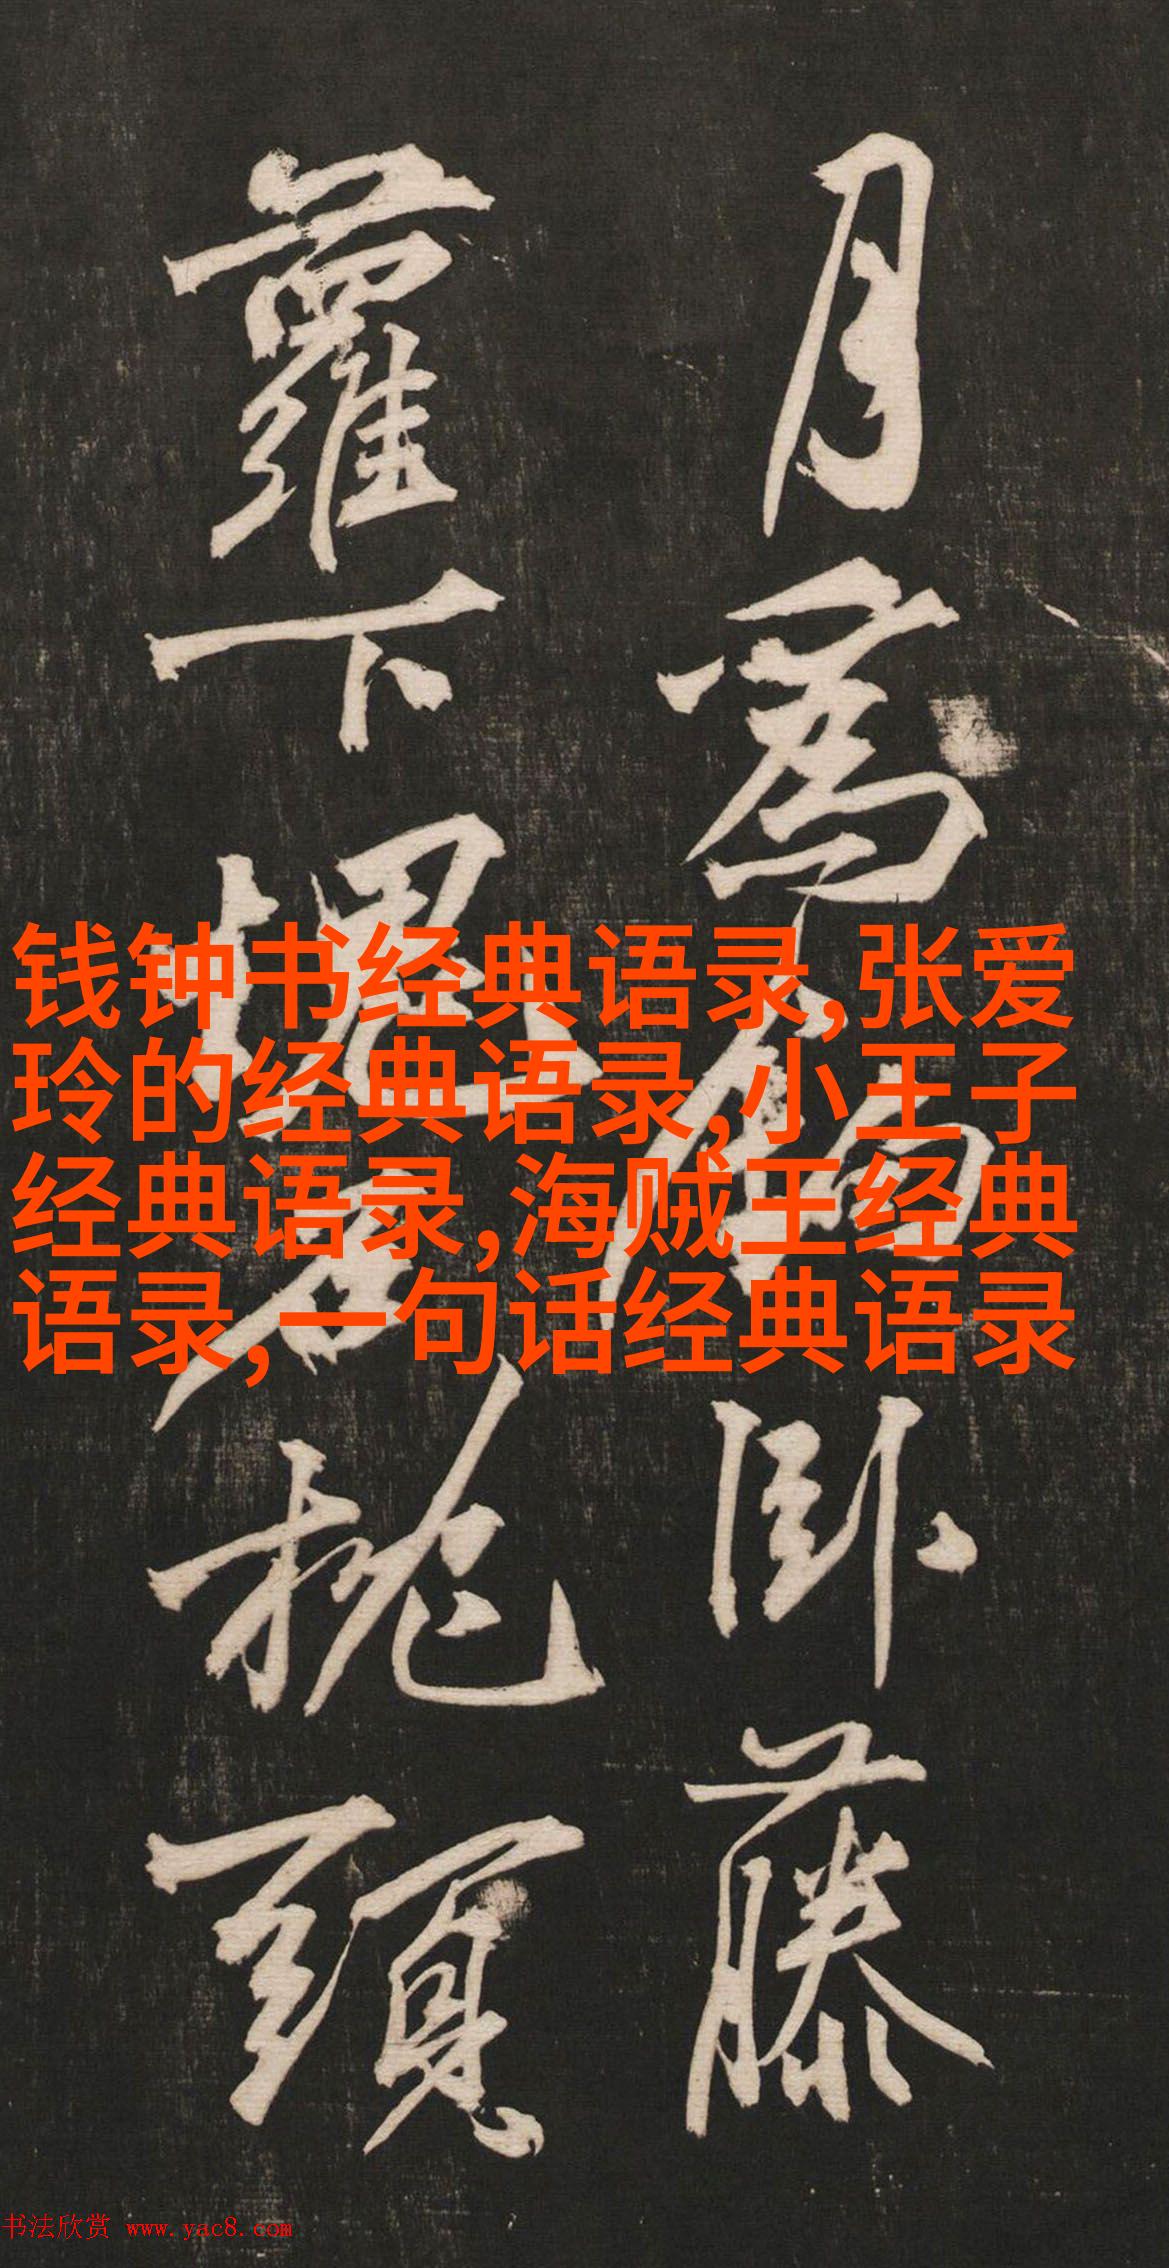 月為偶卧藤
蘿下塊石枕頭
钱钟书经典语录,张爱
玲的经典语录,小王子
经典语录,海贼王经典
语录,一句话经典语录
书法欣赏 www.yac8.com